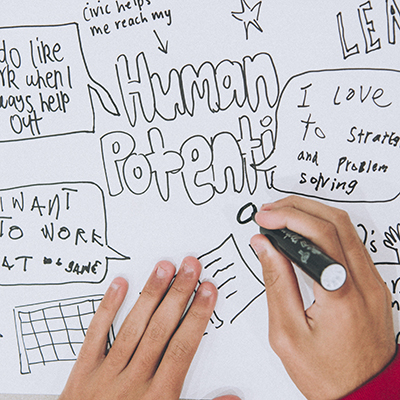 civic helps
me reach my
Human
Potenti
do like
when I
always help
out
I LOVE
to Strate
and Problem
solving
I WANT
TO WORK
AT GAME
LEA